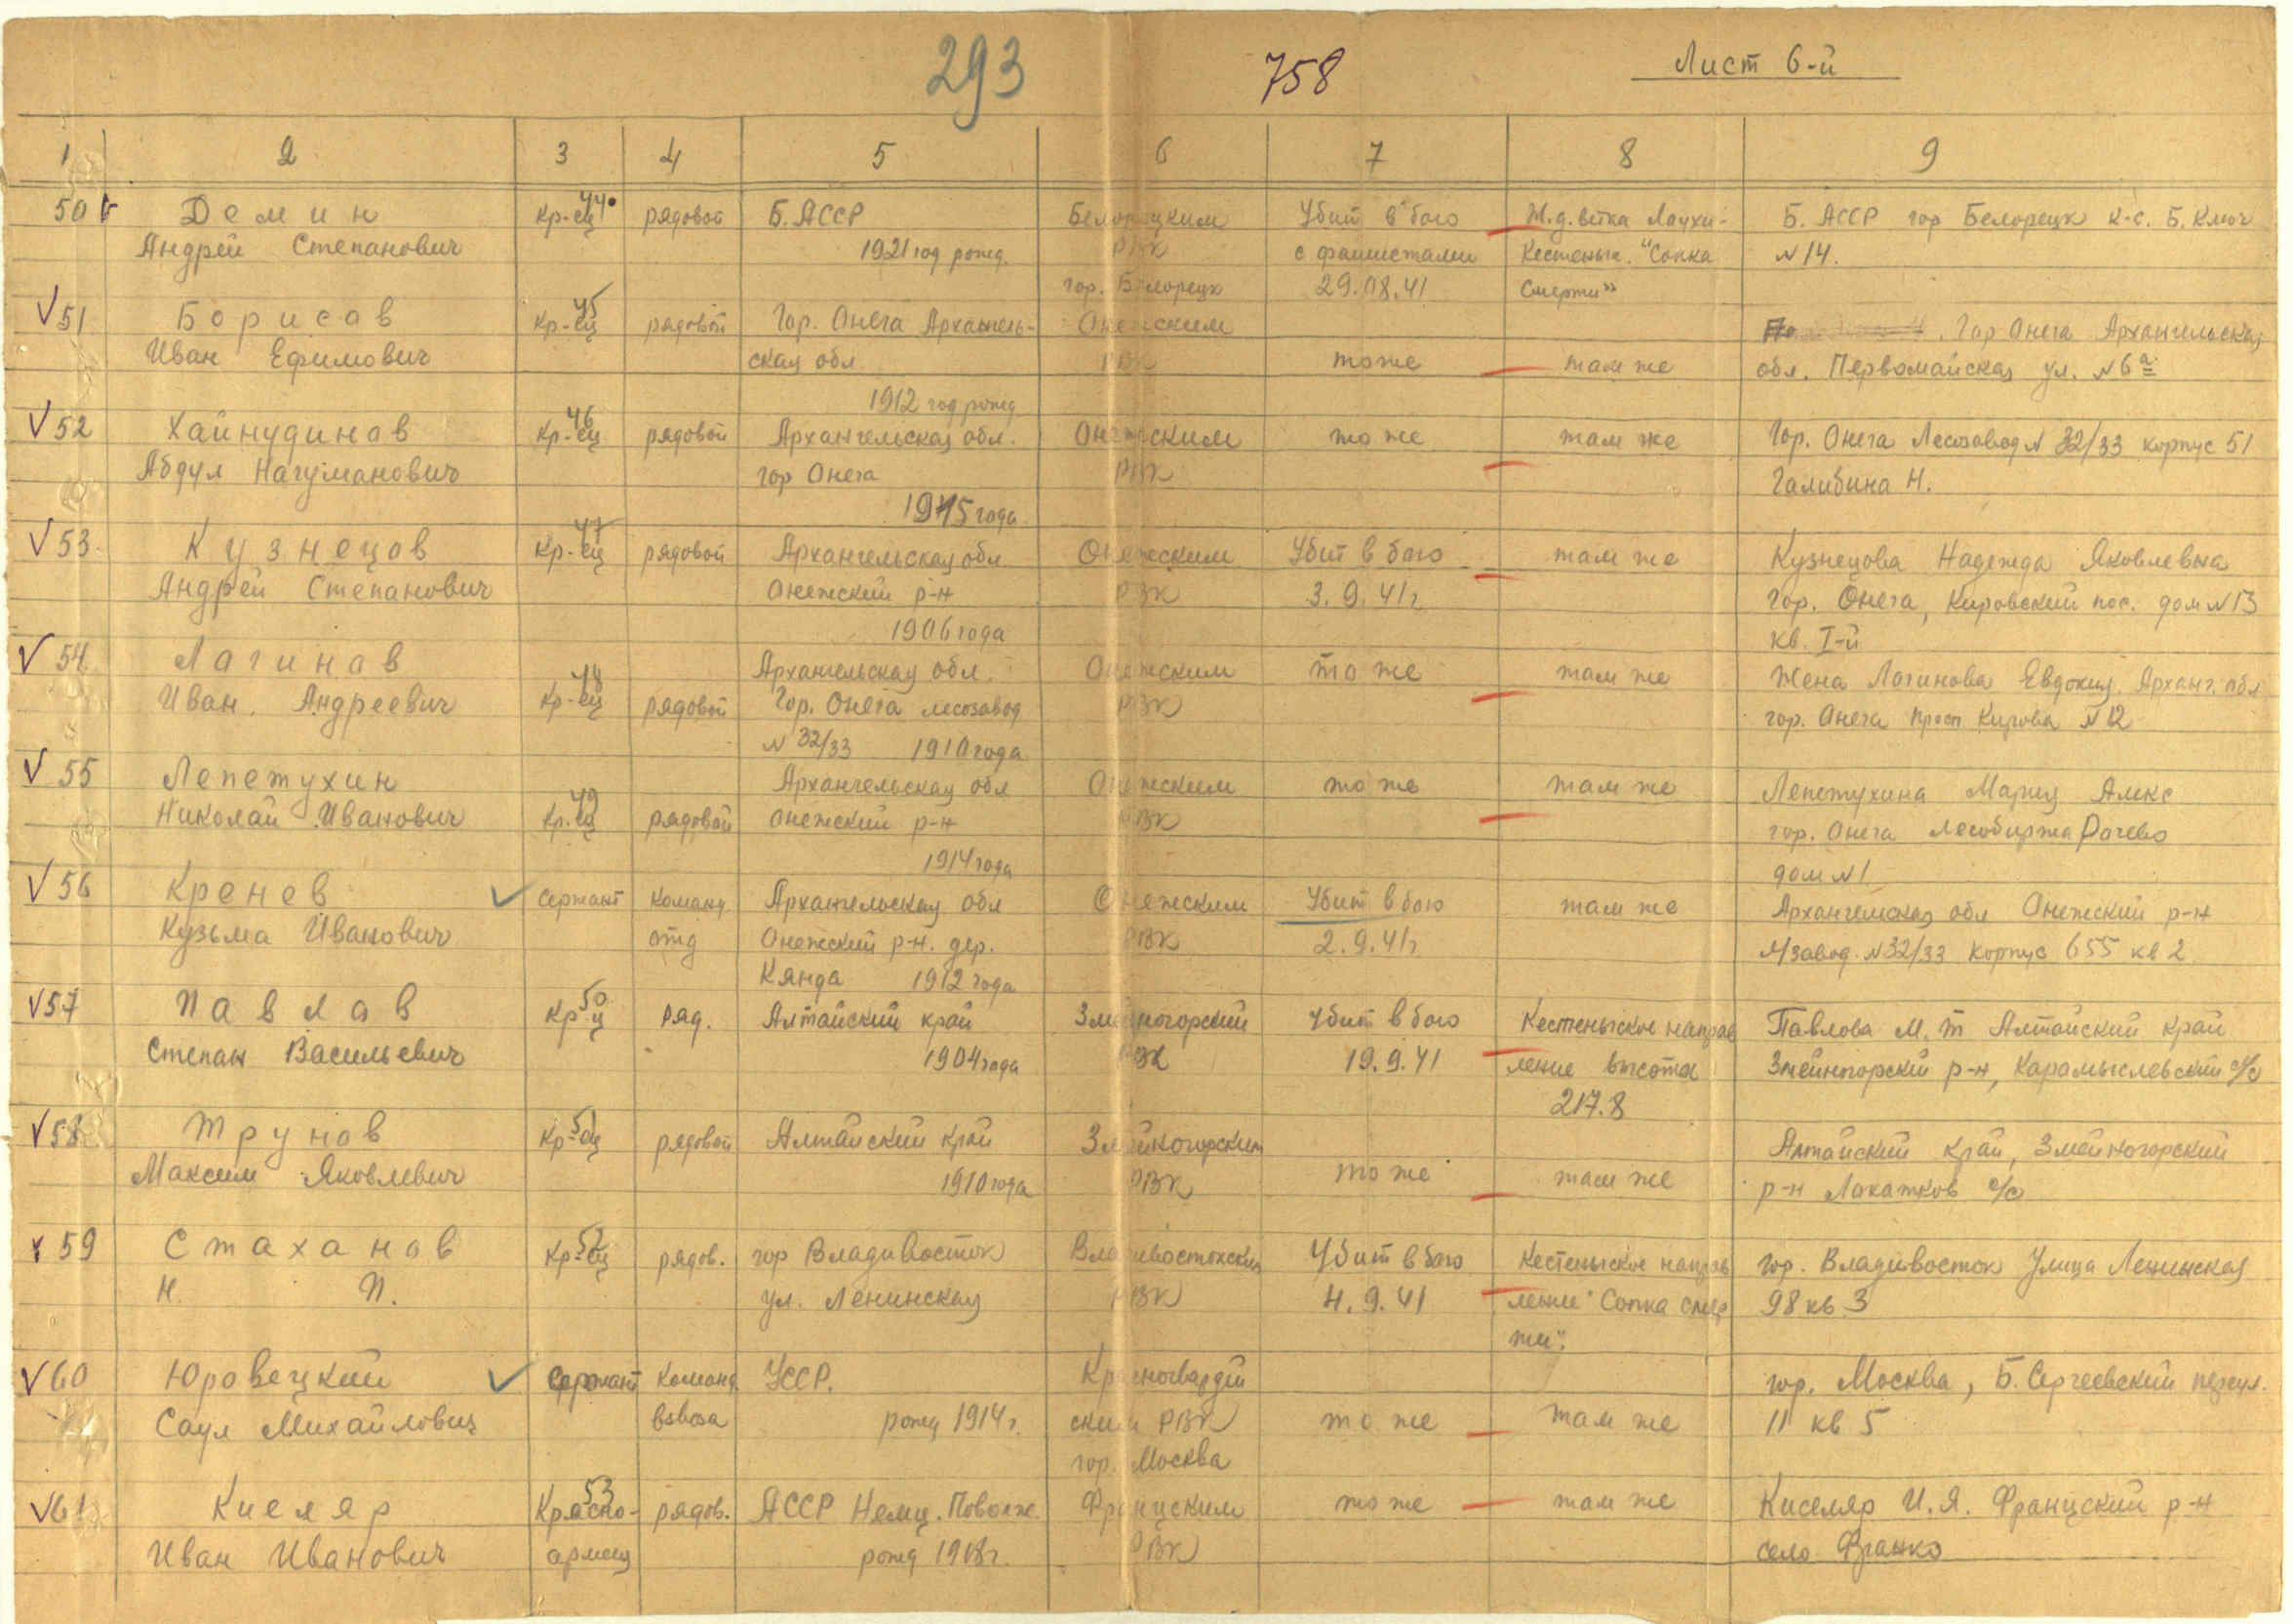 293 758 Лист 6-й
1 2 3 4 5 6 7 8 9
50 Демин Кр-ец 44 рядовой Б. АССР Белорецким Убит в бою Ж.д. ветка Лоухи- Б. АССР гор Белорецк к-с. Б. Ключ
Андрей Степанович 1921 год рожд. РВК с фашистами Кестеньга. "Сопка N 14.
гор. Белорецк 29.08.41 Смерти"
51 Борисов Кр-ец 45 рядовой Гор. Онега Архангель- Онежским Гор Онега Архангельская
Иван Ефимович ская обл РВК то же там же обл. Первомайская ул. N 6а
1912 год рожд
52 Хайнудинов Кр-ец 46 рядовой Архангельская обл. Онежским то же там же Гор. Онега Лесозавод N 32/33 корпус 51
Абдул Нагуманович гор Онега РВК Галибина Н.
1915 года
53. Кузнецов Кр-ец 47 рядовой Архангельская обл. Онежским Убит в бою там же Кузнецова Надежда Яковлевна
Андрей Степанович Онежский р-н РВК 3.9.41г гор. Онега, Кировский пос. дом N 13
1906 года кв. I-й
54 Логинов Архангельская обл. Онежским то же там же Жена Логинова Евдокия. Арханг. обл
Иван Андреевич Кр-ец 48 рядовой Гор. Онега лесозавод РВК гор. Онега просп Кирова N 12
N 32/33 1910 года
55 Лепетухин Архангельская обл Онежским то же там же Лепетухина Мария Алекс
Николай Иванович Кр-ец 49 рядовой Онежский р-н РВК гор. Онега лесобиржа Рочево
1914 года дом N 1
56 Кренев сержант команд Архангельская обл Онежским Убит в бою там же Архангельская обл Онежский р-н
Кузьма Иванович отд Онежский р-н. дер. РВК 2.9.41г л/завод. N 32/33 корпус 655 кв 2
Кянда 1912 года
57 Павлов Кр-ц 50 ряд. Алтайский край Змейногорский Убит в бою Кестеньгское направ Павлова М. Т Алтайский край
Степан Васильевич 1904 года РВК 19.9.41 ление высота Змейногорский р-н, Карамыслевский с/с
217.8
58 Трунов Кр-ец 51 рядовой Алтайский край Змейногорским Алтайский край, Змейногорский
Максим Яковлевич 1910 года РВК то же там же р-н Локатков с/с
59 Стаханов Кр-ец 52 рядов. гор Владивосток Владивостокский Убит в бою Кестеньгское направ гор. Владивосток Улица Ленинская
Н. П. ул. Ленинская РВК 4.9.41 ление "Сопка смер 98 кв. 3
ти".
60 Юровецкий сержант команд. УССР. Красногвардей гор. Москва, Б. Сергеевский переул.
Саул Михайлович взвода рожд 1914г. ским РВК то же там же 11 кв 5
гор. Москва
61 Киеляр Красно- 53 рядов. АССР Немц. Поволж. Францским то же там же Киселяр И. Я. Францский р-н
Иван Иванович армеец рожд 1918г. РВК село Франко